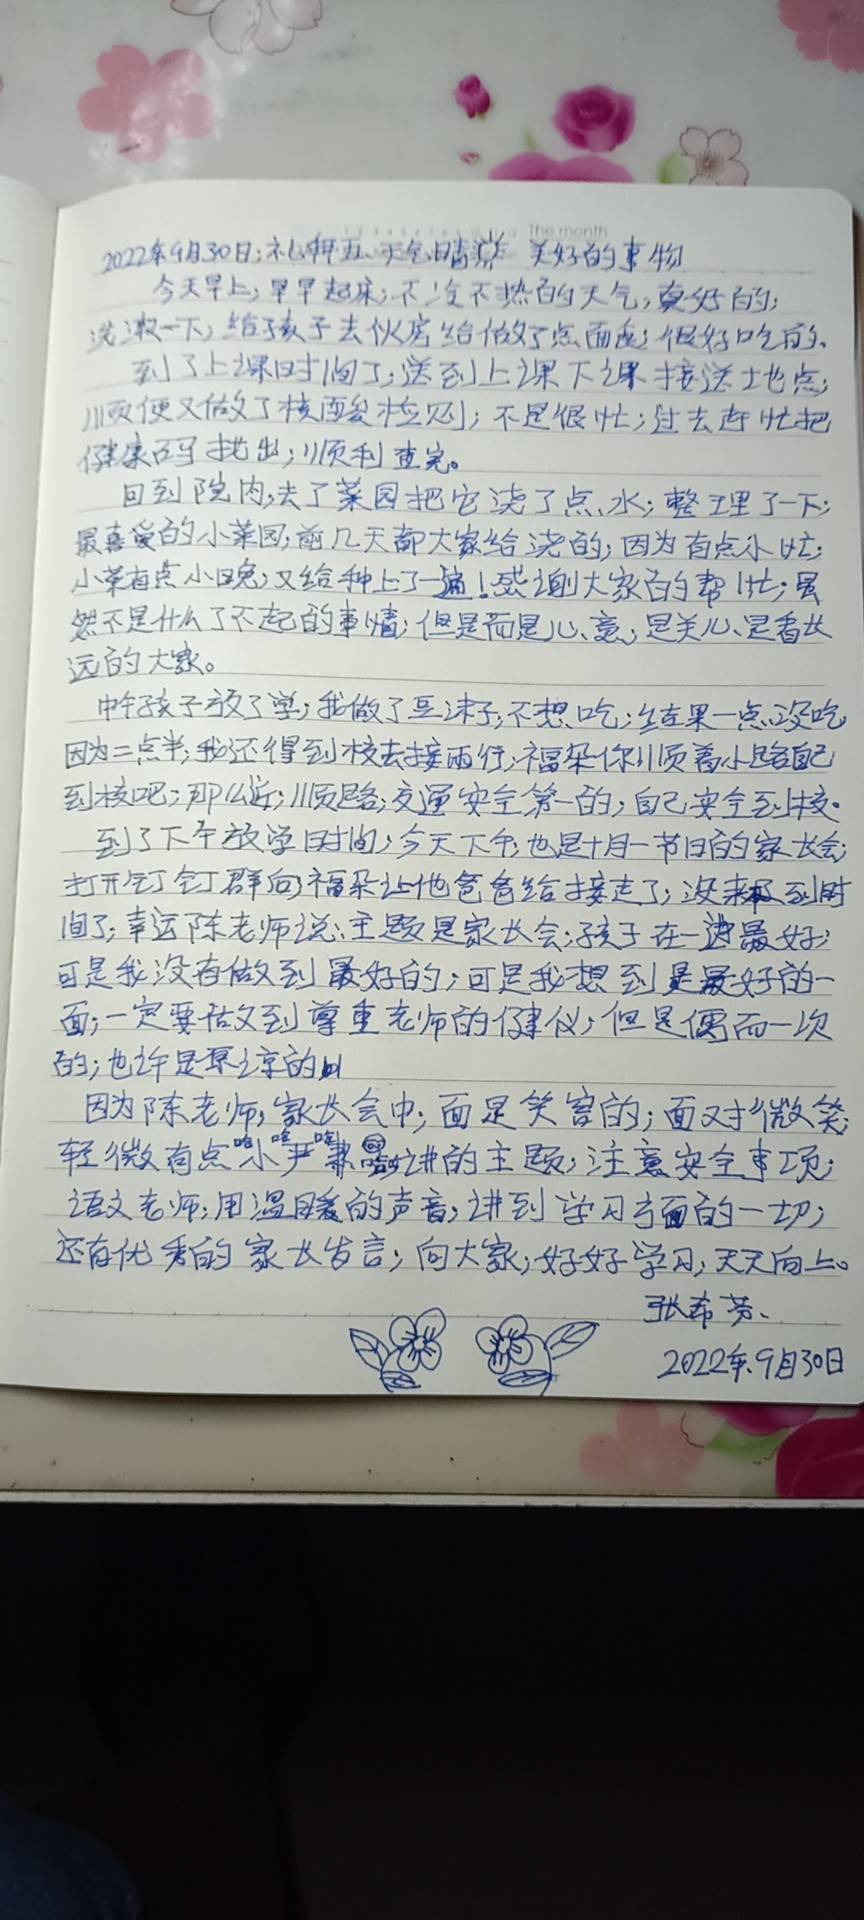 The month
2022年9月30日;礼拜五、天气晴 美好的事物
今天早上;早早起床;不冷不热的天气,真好的;
洗漱一下;给孩子去伙房给做了点面包;很好吃的、
到了上课时间了;送到上课下课接送地点;
顺便又做了核酸检测;不是很忙;过去赶忙把
健康码找出;顺利查完。
回到院内,去了菜园把它浇了点水;整理了一下;
最喜爱的小菜园;前几天都大家给浇的,因为有点小忙;
小菜有点小晚;又给种上了一遍!感谢大家的帮忙;虽
然不是什么了不起的事情;但是而是心意;是关心、是看长
远的大家。
中午孩子放了学;我做了豆沫子,不想吃;结果一点没吃
因为二点半;我还得到校去接雨行;福朵你顺着小路自己
到校吧;那么近;顺路;交通安全第一的;自己安全到校.
到了下午放学时间;今天下午;也是十月一节日的家长会;
打开钉钉群后;福朵让他爸爸给接走了;没来及到时
间了;幸运陈老师说;主题是家长会;孩子在一边最好;
可是我没有做到最好的;可是我想到是最好的一
面;一定要做到尊重老师的建仪;但是偶而一次
的;也许是原谅的
因为陈老师,家长会中;面是笑容的;面对微笑;
轻微有点小严肃 讲的主题;注意安全事项;
哈 哈 哈
语文老师;用温暖的声音;讲到学习方面的一切;
还有优秀的家长发言;向大家;好好学习;天天向上。
张希芳、
2022年.9月30日